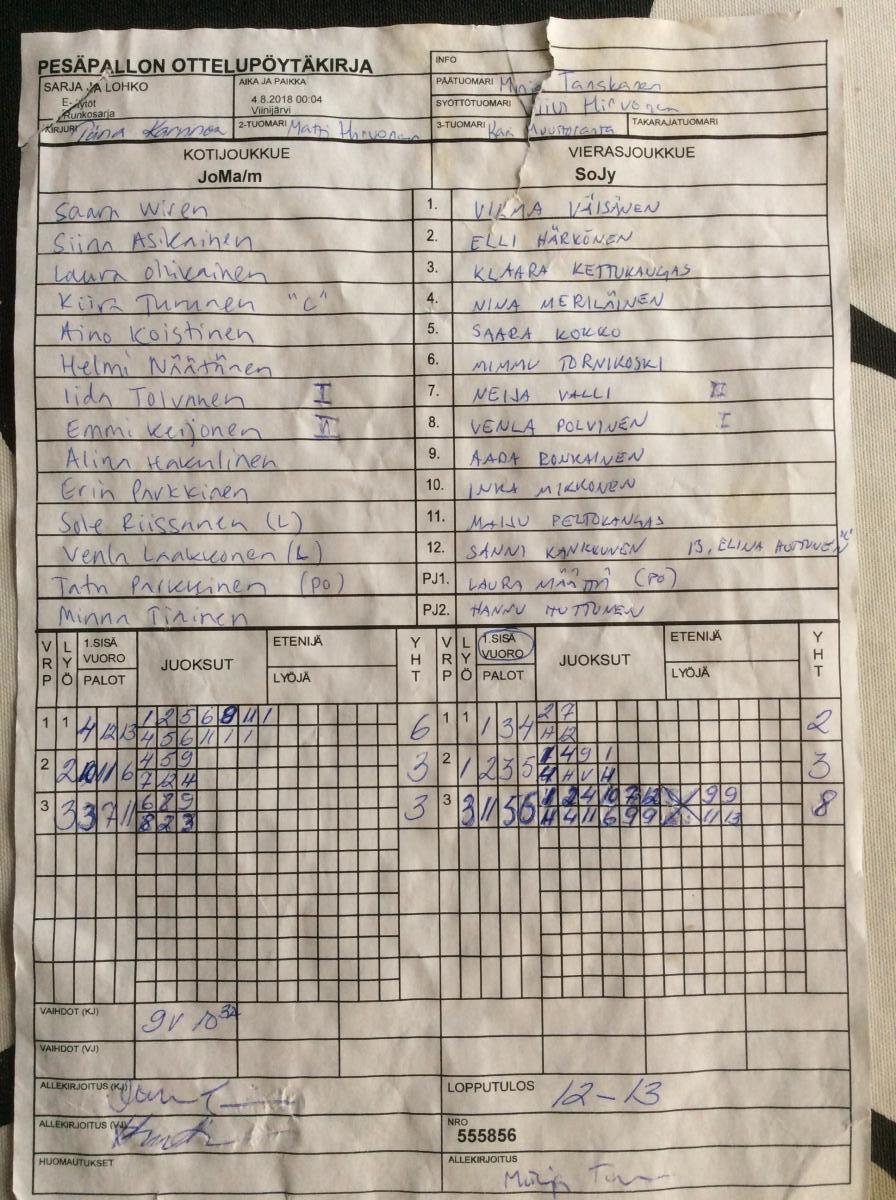 PESÄPALLON OTTELUPÖYTÄKIRJA
INFO
SARJA JA LOHKO
AIKA JA PAIKKA
PÄÄTUOMARI Tanskanen
E-tytöt
Runkosarja
4.8.2018 00:04
Viinijärvi
SYÖTTÖTUOMARI Hirvonen
KIRJURI
2-TUOMARI Matti Hirvonen
3-TUOMARI Kari
TAKARAJATUOMARI
KOTIJOUKKUE
VIERASJOUKKUE
JoMa/m
SoJy
Saara Wiren 1. VILMA VÄISÄNEN
Siina Asikainen 2. ELLI HÄRKÖNEN
Laura Olikainen 3. KLAARA KETTUKANGAS
Kiira Turunen "C" 4. NINA MERILÄINEN
Aino Koistinen 5. SAARA KOKKO
Helmi Näätänen 6. MIMMU TORNIKOSKI
Iida Toivanen I 7. NEIJA VALLI II
Emmi Keijonen II 8. VENLA POLVINEN I
Alina Hakulinen 9. AADA RONKAINEN
Erin Parkkinen 10. INKA MIKKONEN
Sole Riissanen (L) 11. MAIJU PELTOKANGAS
Venla Laakkonen (L) 12. SANNI KANKKUNEN 13, ELINA HUTTUNEN "C"
Tatu Parkkinen (PO) PJ1. LAURA MÄÄTTÄ (PO)
Minna Tininen PJ2. HANNU HUTTUNEN
VRP LYÖ 1.SISÄ VUORO PALOT JUOKSUT ETENIJÄ LYÖJÄ YHT VRP LYÖ 1.SISÄ VUORO PALOT JUOKSUT ETENIJÄ LYÖJÄ YHT
1 1 4 12 13 1 2 5 6 8 11 1 6 1 1 1 3 4 2 7 2
4 5 6 11 1 1 H 12
2 2 10 11 6 4 5 9 3 2 1 2 3 5 1 4 9 1 3
7 12 4 4 H V H
3 3 3 7 11 6 8 9 3 3 3 11 5 6 1 2 4 10 7 12 9 9 8
8 2 3 4 4 11 6 9 9 11 13
VAIHDOT (KJ) 9V 10 32
VAIHDOT (VJ)
ALLEKIRJOITUS (KJ)
LOPPUTULOS 12-13
ALLEKIRJOITUS (VJ)
NRO
555856
HUOMAUTUKSET
ALLEKIRJOITUS